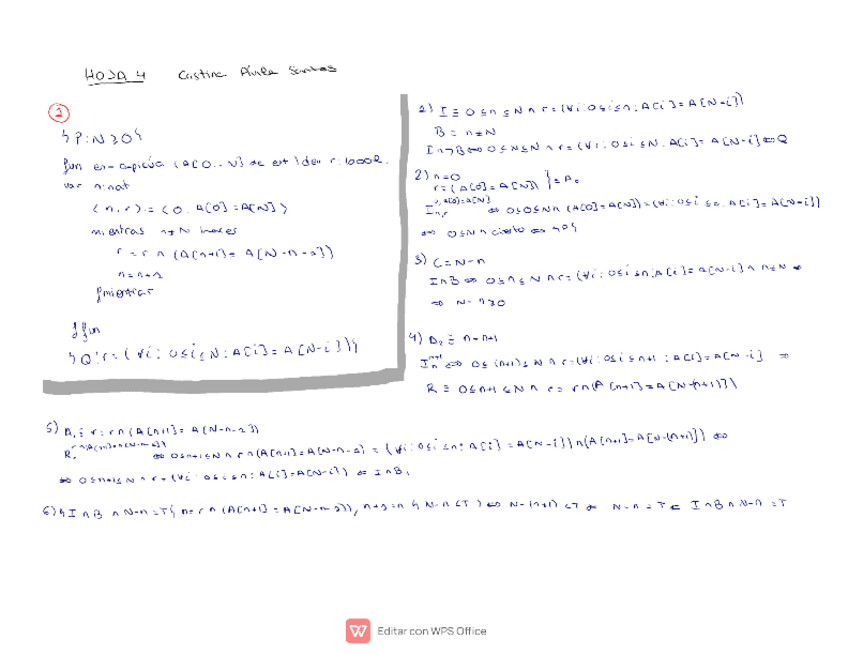 HOJA 4 Cristina Santos
2
{P: N≥0}
fun es-capicúa (A[0..N] de ent) dev r: bool
var n:nat
⟨n,r⟩ := ⟨0, A[0]=A[N]⟩
mientras n≠N hacer
r = r ∧ (A[n+1] = A[N-n-1])
n=n+1
fmientras
ffun
{Q: r = (∀i: 0≤i≤N: A[i] = A[N-i])}
1) I ≡ 0≤n≤N ∧ r = (∀i: 0≤i≤n: A[i] = A[N-i])
B ≡ n≠N
I∧¬B ⇔ 0≤N≤N ∧ r = (∀i: 0≤i≤N: A[i] = A[N-i]) ⇔ Q
2) n=0
r=(A[0]=A[N]) } ≡ A₀
I n,r 0, A[0]=A[N] ⇔ 0≤0≤N ∧ (A[0]=A[N]) = (∀i: 0≤i≤0: A[i] = A[N-i])
⇔ 0≤N ∧ cierto ⇔ {P}
3) C = N-n
I∧B ⇔ 0≤n≤N ∧ r = (∀i: 0≤i≤n: A[i] = A[N-i]) ∧ n≠N ⇒
⇒ N-n≥0
4) A₂ ≡ n=n+1
I n n+1 ⇔ 0≤(n+1)≤N ∧ r = (∀i: 0≤i≤n+1: A[i] = A[N-i]) ⇒
R ≡ 0≤n+1≤N ∧ r = r∧(A[n+1]=A[N-(n+1)])
5) A₁ ≡ r = r∧(A[n+1] = A[N-n-1])
R r r∧(A[n+1]=A[N-n-1]) ⇔ 0≤n+1≤N ∧ r∧(A[n+1]=A[N-n-1]) = (∀i: 0≤i≤n: A[i] = A[N-i]) ∧ (A[n+1]=A[N-(n+1)]) ⇔
⇔ 0≤n+1≤N ∧ r = (∀i: 0≤i≤n: A[i]=A[N-i]) ⇐ I∧B
6) {I∧B ∧ N-n=T} r = r∧(A[n+1] = A[N-n-1]), n+1=n {N-n<T} ⇔ N-(n+1)<T ⇐ N-n=T ⇐ I∧B∧N-n=T
Editar con WPS Office